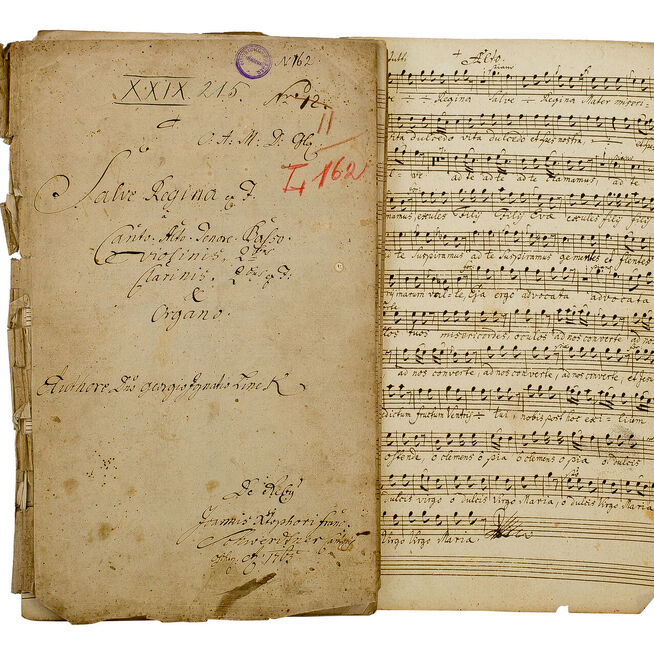 N 162
XXIX 215.
Nro 12.
II
L 162
O. A. M. D. Gl.
Salve Regina
a
Canto. Alto. Tenore. Basso.
Violinis. 2bus
Clarinis. 2bus
&
Organo.
Authore Dno Georgio Ignatio Linek
De Reby
Joannis
1765
Tutti
Alto.
piano
Regina Salve Regina Mater miseri-
vita dulcedo vita dulcedo et spes nostra,
ve ad te ad te ad te clamamus, ad te
exules filij filij Evæ exules filij filij
ad te Suspiramus ad te Suspiramus gementes et flentes
Eja ergo advocata advocata
tuos misericordes, oculos ad nos converte ad nos
ad nos converte, ad nos converte, ad nos converte,
fructum Ventris tui, nobis post hoc exilium
ostende, o clemens o pia o clemens o pia o dulcis
dulcis Virgo o dulcis Virgo Maria, o dulcis Virgo Maria
Virgo Virgo Maria